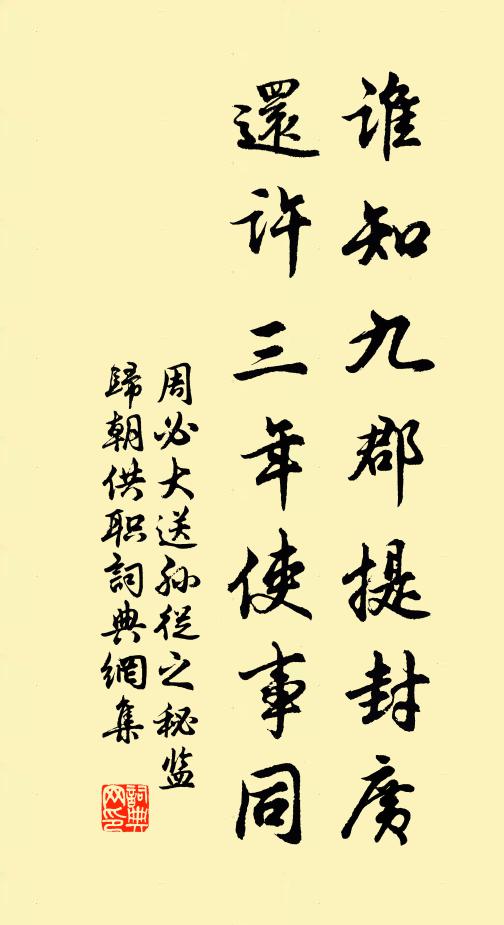 誰知九郡提封廣
還許三年使事同
周必大送孙從之秘监
歸朝供职詞典網集
詞典网印